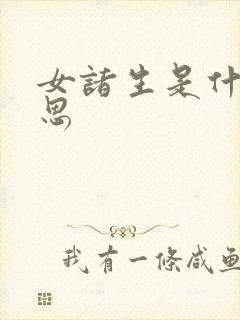 女諸生是什
思
我有一條咸魚